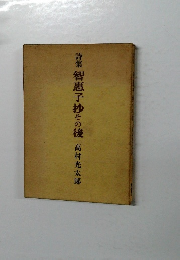 詩集 智恵子抄その後 高村光太郎